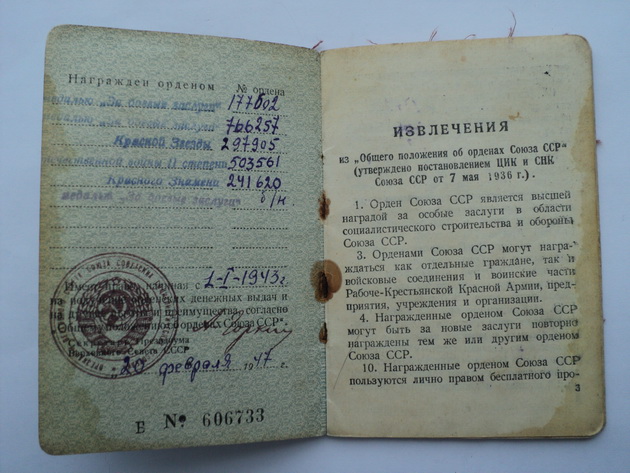 Награжден орденом
№ ордена
медалью „За боевые заслуги" 177602
медалью „За боевые заслуги" 766257
Красной Звезды 297905
Отечественной войны II степени 503561
Красного Знамени 241620
медалью „За боевые заслуги" б/н
1-I-1943г
на получение денежных выдач и
на преимущества согласно
положению о орденах Союза ССР"
Секретарь Президиума
Верховного Совета СССР
„20" февраля 1947 г.
Е № 606733
ИЗВЛЕЧЕНИЯ
из „Общего положения об орденах Союза ССР"
(утверждено постановлением ЦИК и СНК
Союза ССР от 7 мая 1936 г.).
1. Орден Союза ССР является высшей
наградой за особые заслуги в области
социалистического строительства и обороны
Союза ССР.
3. Орденами Союза ССР могут награ-
ждаться как отдельные граждане, так и
войсковые соединения и воинские части
Рабоче-Крестьянской Красной Армии, пред-
приятия, учреждения и организации.
4. Награжденные орденом Союза ССР
могут быть за новые заслуги повторно
награждены тем же или другим орденом
Союза ССР.
10. Награжденные орденом Союза ССР
пользуются лично правом бесплатного про-
3